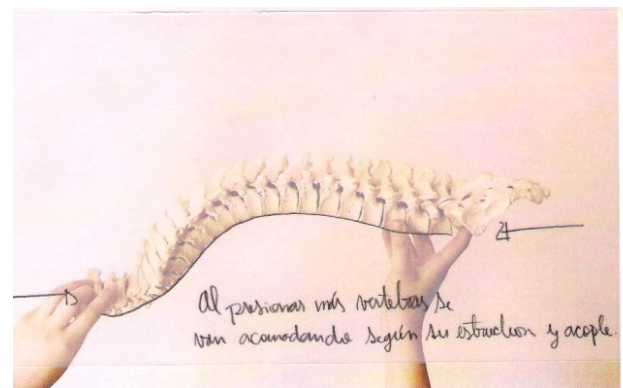 Al presionar más vertebras se
van acomodando según su estruction y acople.